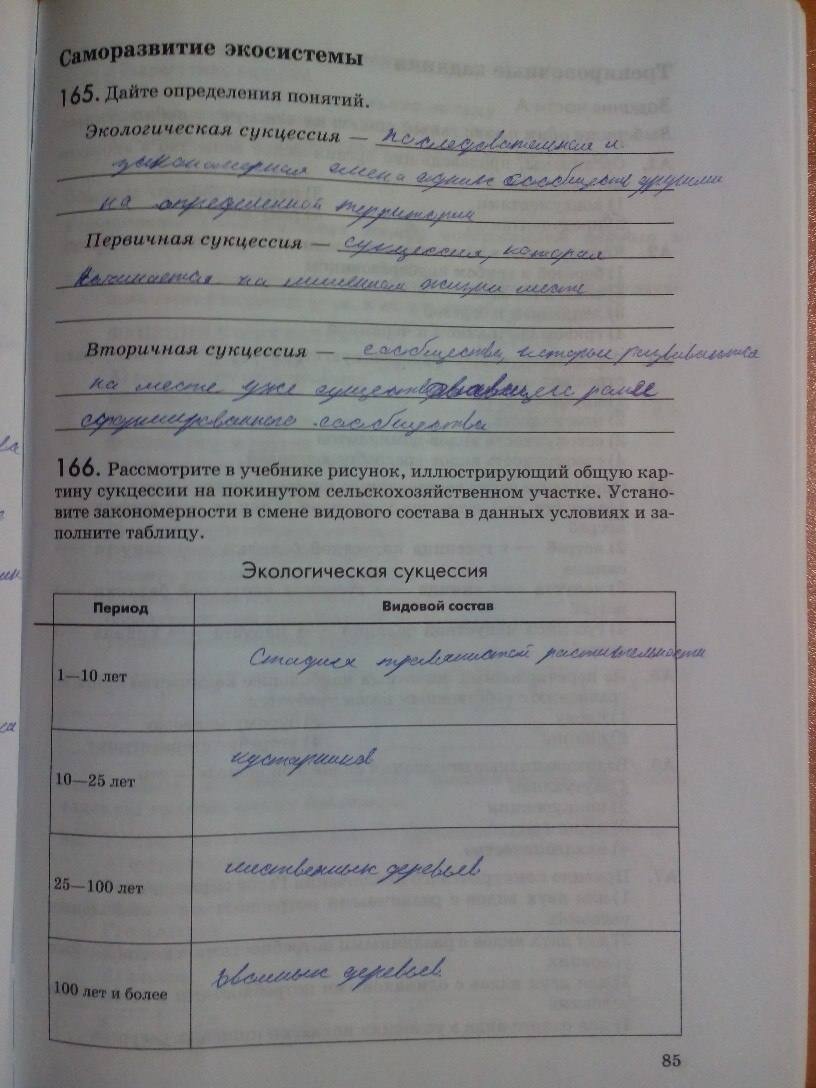 Саморазвитие экосистемы
165. Дайте определения понятий.
Экологическая сукцессия — последовательная и
закономерная смена одних сообществ другими
на определенной территории
Первичная сукцессия — сукцессия, которая
начинается на лишенном жизни месте
Вторичная сукцессия — сообщества, которые развиваются
на месте уже существовавшего ранее
сформированного сообщества
166. Рассмотрите в учебнике рисунок, иллюстрирующий общую кар-
тину сукцессии на покинутом сельскохозяйственном участке. Устано-
вите закономерности в смене видового состава в данных условиях и за-
полните таблицу.
Экологическая сукцессия
Период Видовой состав
Стадия травянистой растительности
1—10 лет
кустарников
10—25 лет
лиственных деревьев
25—100 лет
хвойных деревьев
100 лет и более
85